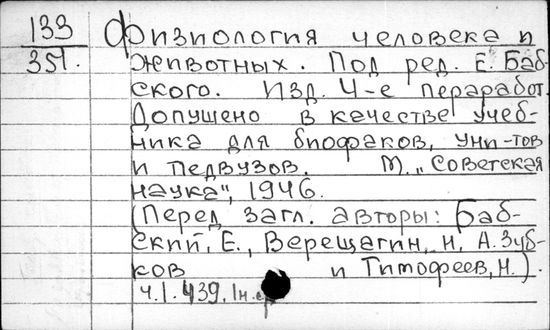 133
351.
Физиология человека и
животных. Под ред. Е. Баб-
ского. Изд. 4-е переработ.
Допущено в качестве учеб-
ника для биофаков, уни-тов
и педвузов. М., "Советская
наука", 1946.
(Перед загл. авторы: Баб-
ский, Е., Верещагин, Н, А. Зуб-
ков и Тимофеев, Н.).
Ч.I. 439, Iн.